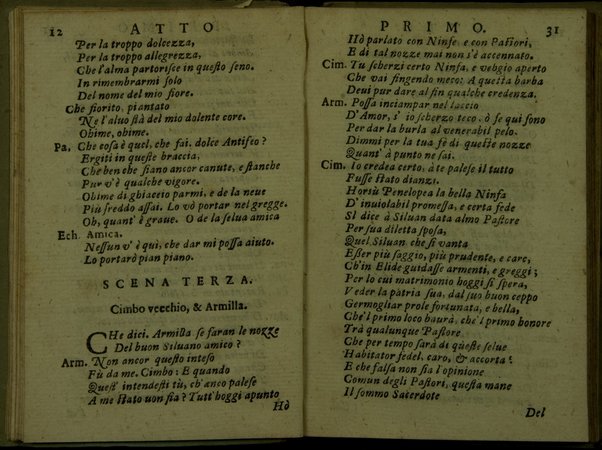 12 ATTO
Per la troppo dolcezza,
Per la troppo allegrezza,
Che l'alma partorisce in questo seno.
In rimembrarmi solo
Del nome del mio fiore.
Che fiorito, piantato
Ne l'aluo stà del mio dolente core.
Ohime, ohime.
Pa, Che cosa è quel, che fai, dolce Antifeo?
Ergiti in queste braccia,
Che ben che siano ancor canute, e stanche
Pur v'è qualche vigore.
Ohime di ghiaccio parmi, e de la neue
Più freddo assai. Lo vò portar nel gregge.
Oh, quant'è graue. O de la selua amica
Ech. Amica.
Nessun v'è quì, che dar mi possa aiuto.
Lo portarò pian piano.
SCENA TERZA.
Cimbo vecchio, & Armilla.
CHe dici. Armilla se faran le nozze
Del buon Siluano amico?
Arm. Non ancor questo inteso
Fù da me. Cimbo: E quando
Quest' intendesti tù, ch'anco palese
A me stato non sia? Tutt'hoggi apunto
Hò
PRIMO. 31
Hò parlato con Ninfe, e con Pastori,
E di tal nozze mai non s'è accennato.
Cim. Tu scherzi certo Ninfa, e vehgio aperto
Che vai fingendo meco; A questa barba
Deui pur dare al fin qualche credenza.
Arm. Possa inciampar nel laccio
D'Amor, s'io scherzo teco, ò se qui sono
Per dar la burla al venerabil pelo.
Dimmi per la tua fè di queste nozze
Quant' à punto ne sai.
Cim. Io credea certo, à te palese il tutto
Fusse stato dianzi.
Horsù Penelopea la bella Ninfa
D' inuiolabil promessa, e certa fede
Si dice à Siluan data almo Pastore
Per sua diletta sposa,
Quel Siluan che si vanta
Esser più saggio, più prudente, e care,
Ch'in Elide guidasse armenti, e greggi;
Per lo cui matrimonio hoggi si spera,
Veder la patria sua, dal suo buon ceppo
Germogliar prole fortunata, e bella,
Che'l primo loco haurà, che'l primo honore
Trà qualunque Pastore
Che per tempo sarà di queste selue
Habitator fedel, caro, & accorta.
E che falsa non sia l'opinione
Comun degli Pastori, questa mane
Il sommo Sacerdote
Del